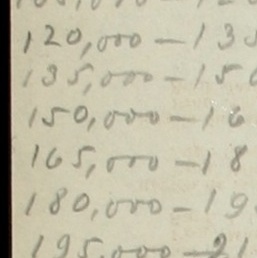 120,000 – 135
135,000 – 150
150,000 – 16
165,000 – 18
180,000 – 19
195,000 – 21